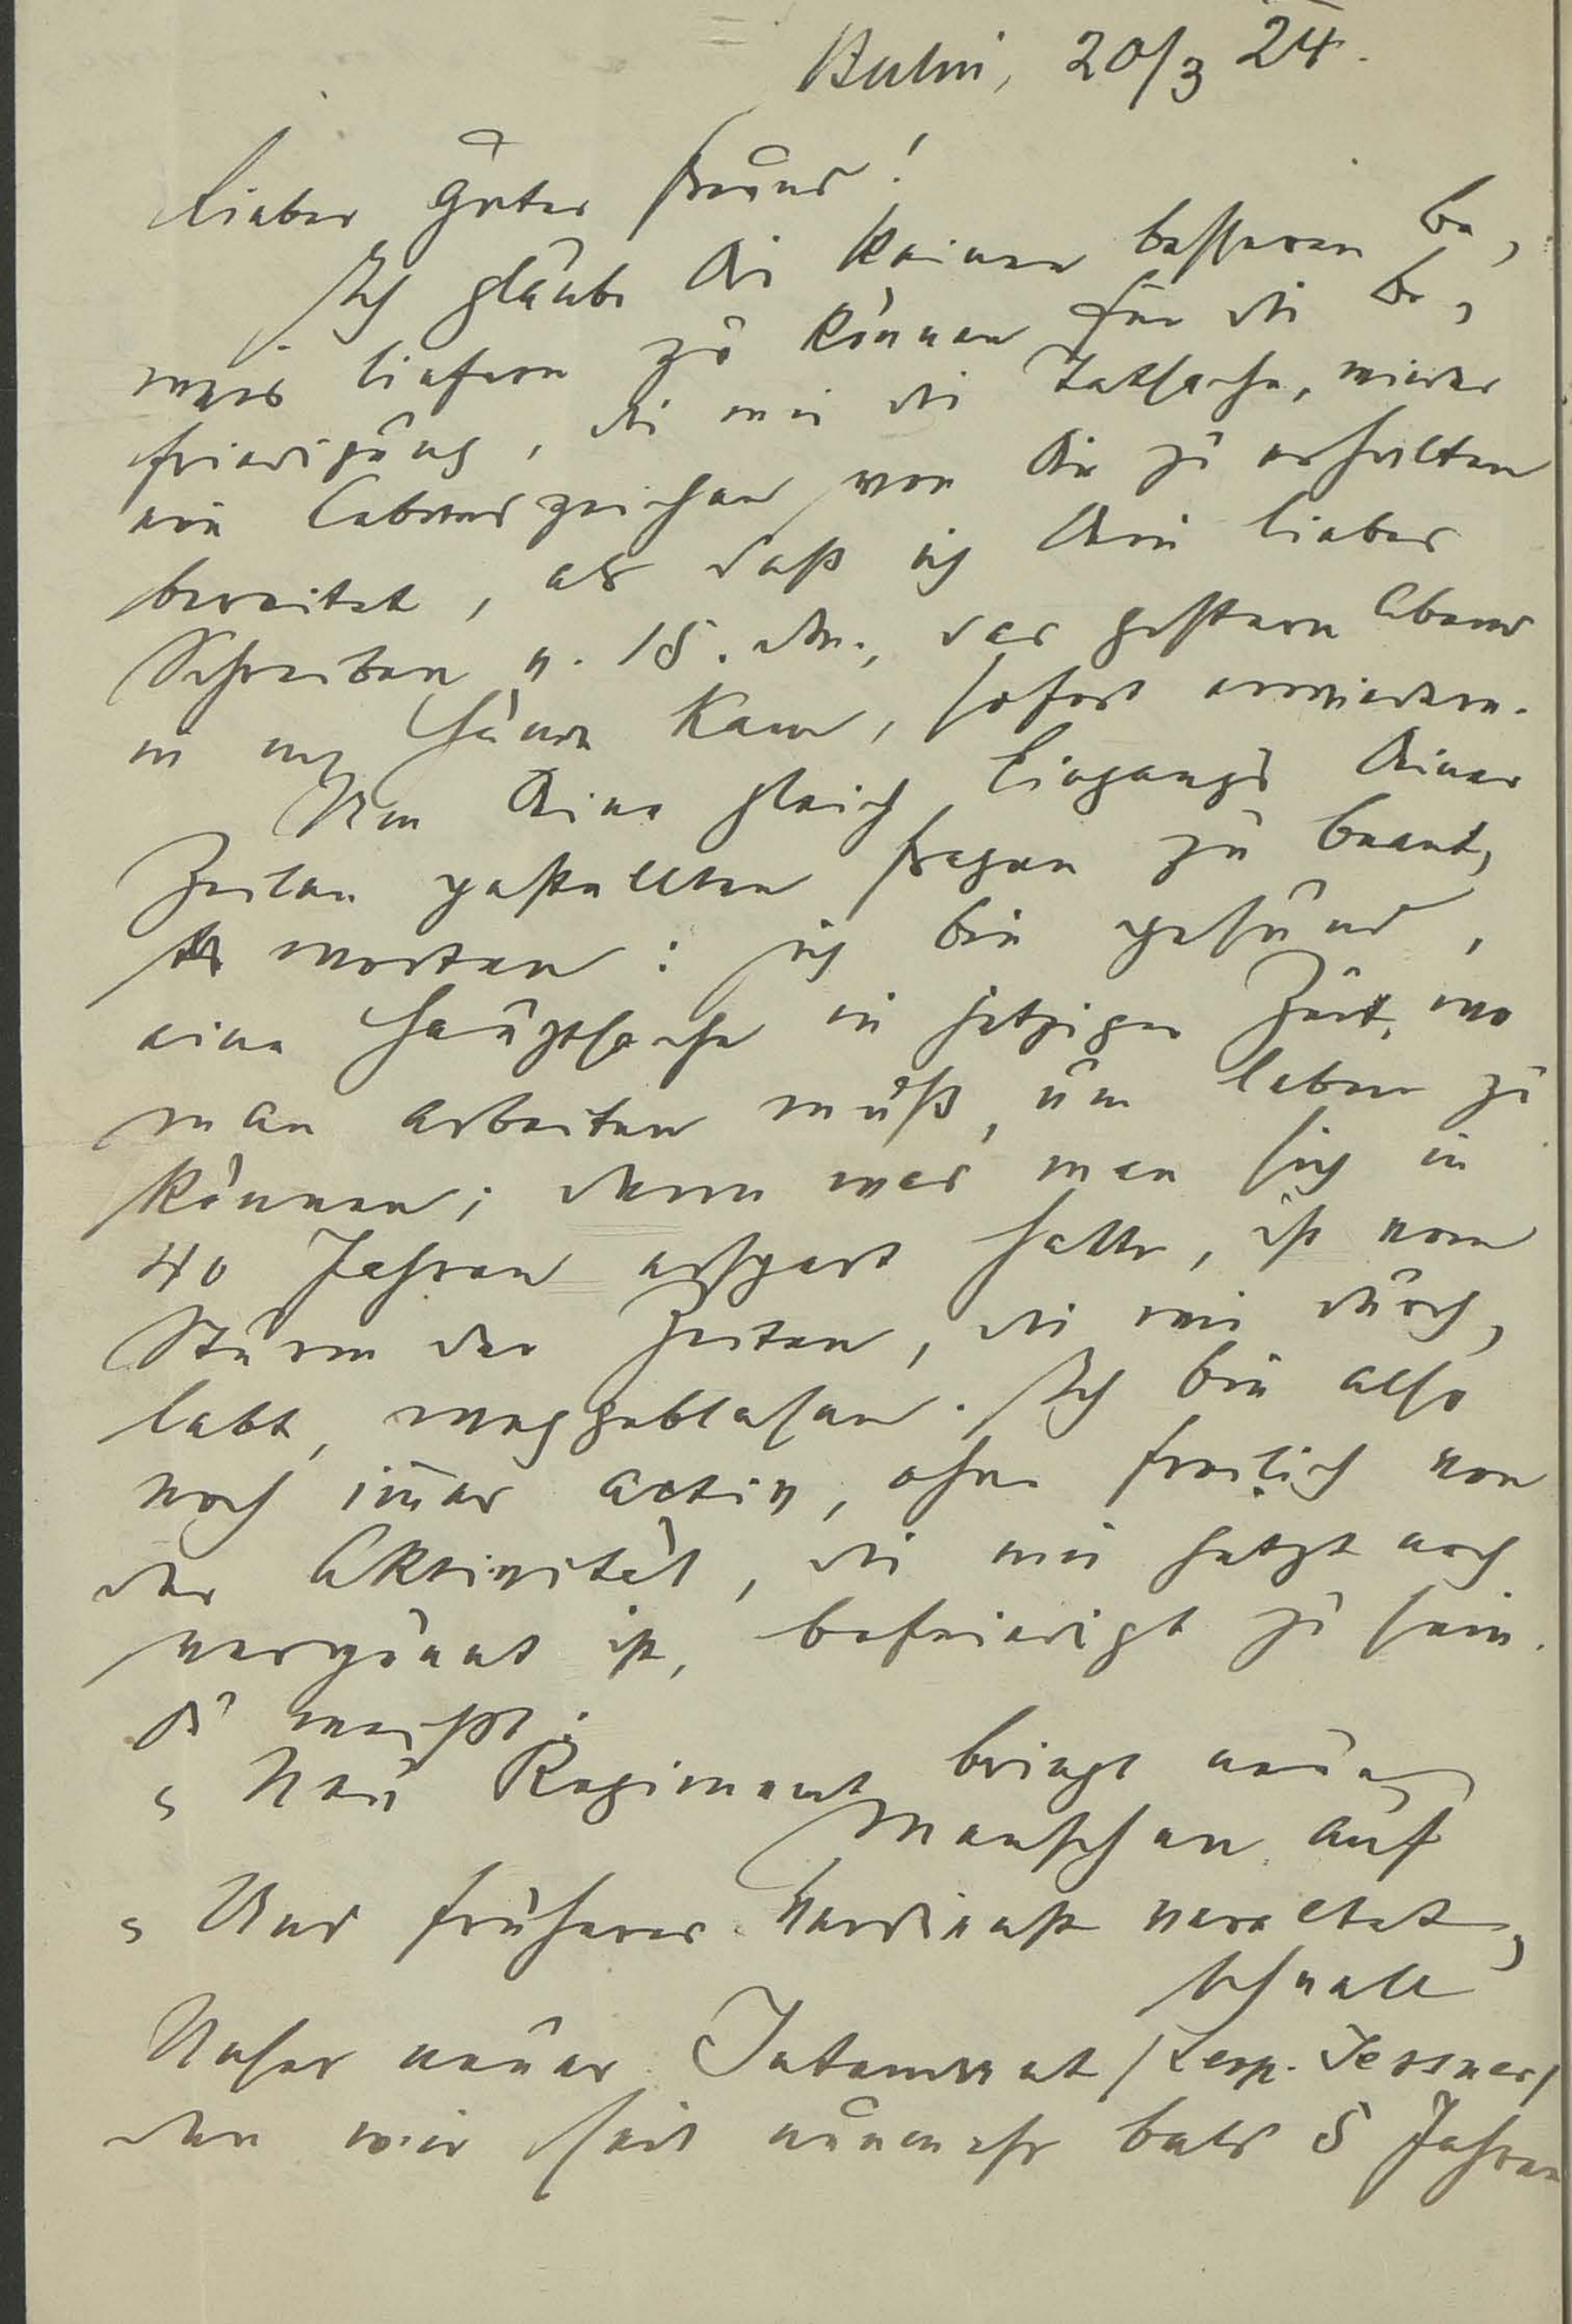 Berlin, 20/3 24.
Lieber guter Freund!
Ich glaube Dir keinen besseren Be-
weis liefern zu können für die Be-
friedigung, die mir die Tatsache, wieder
ein Lebenszeichen von Dir zu erhalten
bereitet, als daß ich Dein lieber
Schreiben v. 18. dM., das gestern Abend
in m Hände kam, sofort erwiedere.
Um Deine gleich Eingangs Deiner
Zeilen gestellten Fragen zu beant-
worten: ich bin gesund,
eine Hauptsache in jetziger Zeit, wo
man arbeiten muß, um leben zu
können; denn was man sich in
40 Jahren erspart hatte, ist vom
Sturm der Zeiten, die wir durch-
lebt, weggeblasen. Ich bin also
noch im̅er activ, ohne freilich von
der Aktivität, die mir jetzt noch
vergönnt ist, befriedigt zu sein.
Du weißt:
„Neu Regiment bringt neue
Menschen auf
„Und früheres Verdienst veraltet
schnell"
Unser neuer Intendant /Leop. Jessner/
den wir seit nunmehr bald 5 Jahren